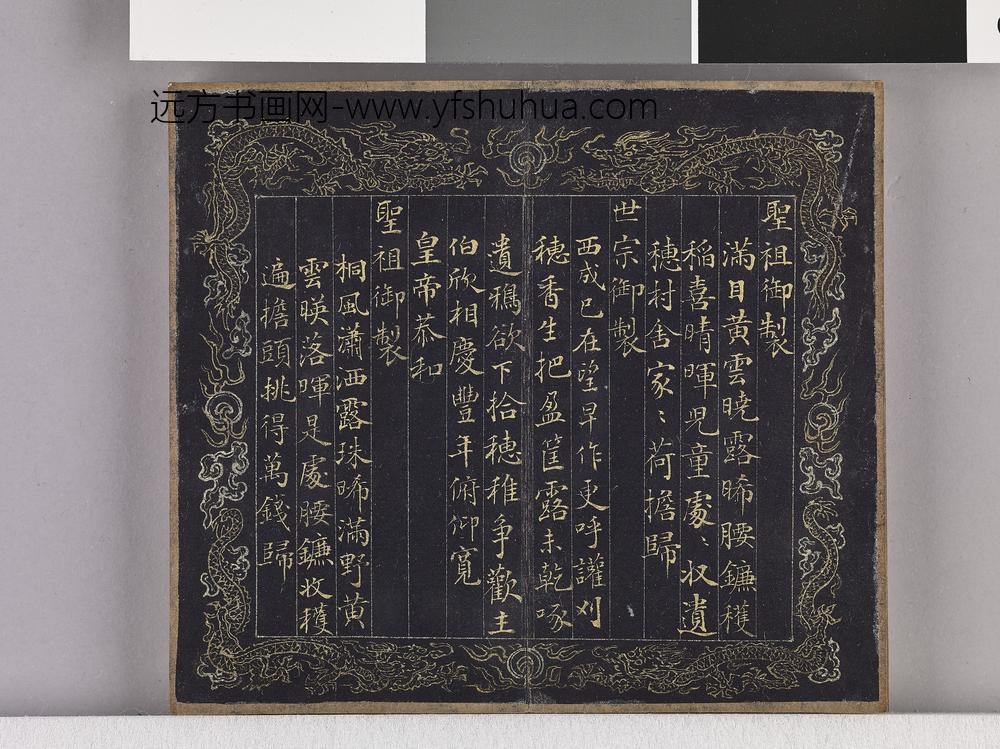 远方书画网-www.yfshuhua.com
聖祖御製
滿目黃雲曉露晞腰鐮穫
稻喜晴暉兒童處〻收遺
穗村舍家〻荷擔歸
世宗御製
西成已在望早作更呼讙刈
穗香生把盈筐露未乾啄
遺鴉欲下拾穗稚争歡主
伯欣相慶豐年俯仰寬
皇帝恭和
聖祖御製
桐風瀟洒露珠晞滿野黃
雲暎落暉是處腰鐮收穫
遍擔頭挑得萬錢歸